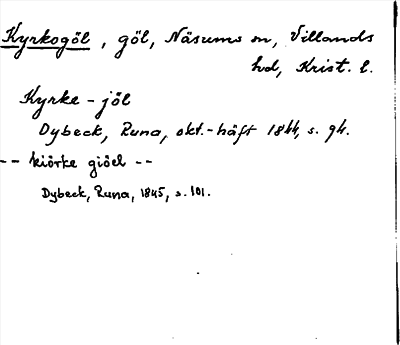 Kyrkogöl, göl, Näsums sn, Villands
hd, Krist. l.
Kyrke-jöl
Dybeck, Runa, okt.-häft 1844, s. 94.
-- kiörke giöel --
Dybeck, Runa, 1845, s. 101.